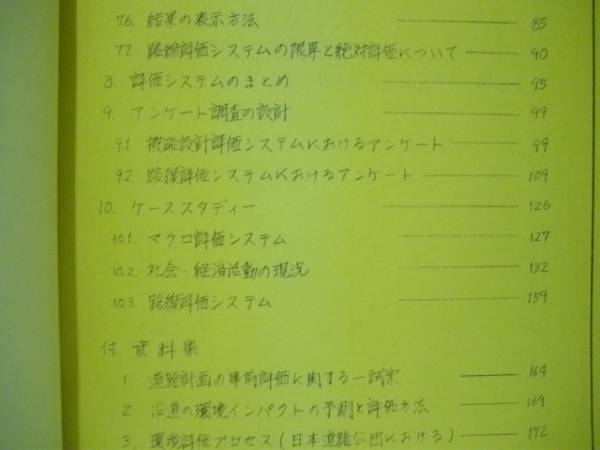 7.6. 結果の表示方法 85
7.7. 路線評価システムの限界と絶対評価について 90
8. 評価システムのまとめ 95
9. アンケート調査の設計 99
9.1. 概略設計評価システムにおけるアンケート 99
9.2. 路線評価システムにおけるアンケート 109
10. ケーススタディー 126
10.1. マクロ評価システム 127
10.2. 社会・経済活動の現況 132
10.3. 路線評価システム 139
付. 資料集
1. 道路計画の事前評価に関する一試案 164
2. 沿道の環境インパクトの予測と評価方法 169
3. 環境評価プロセス(日本道路公団における) 172